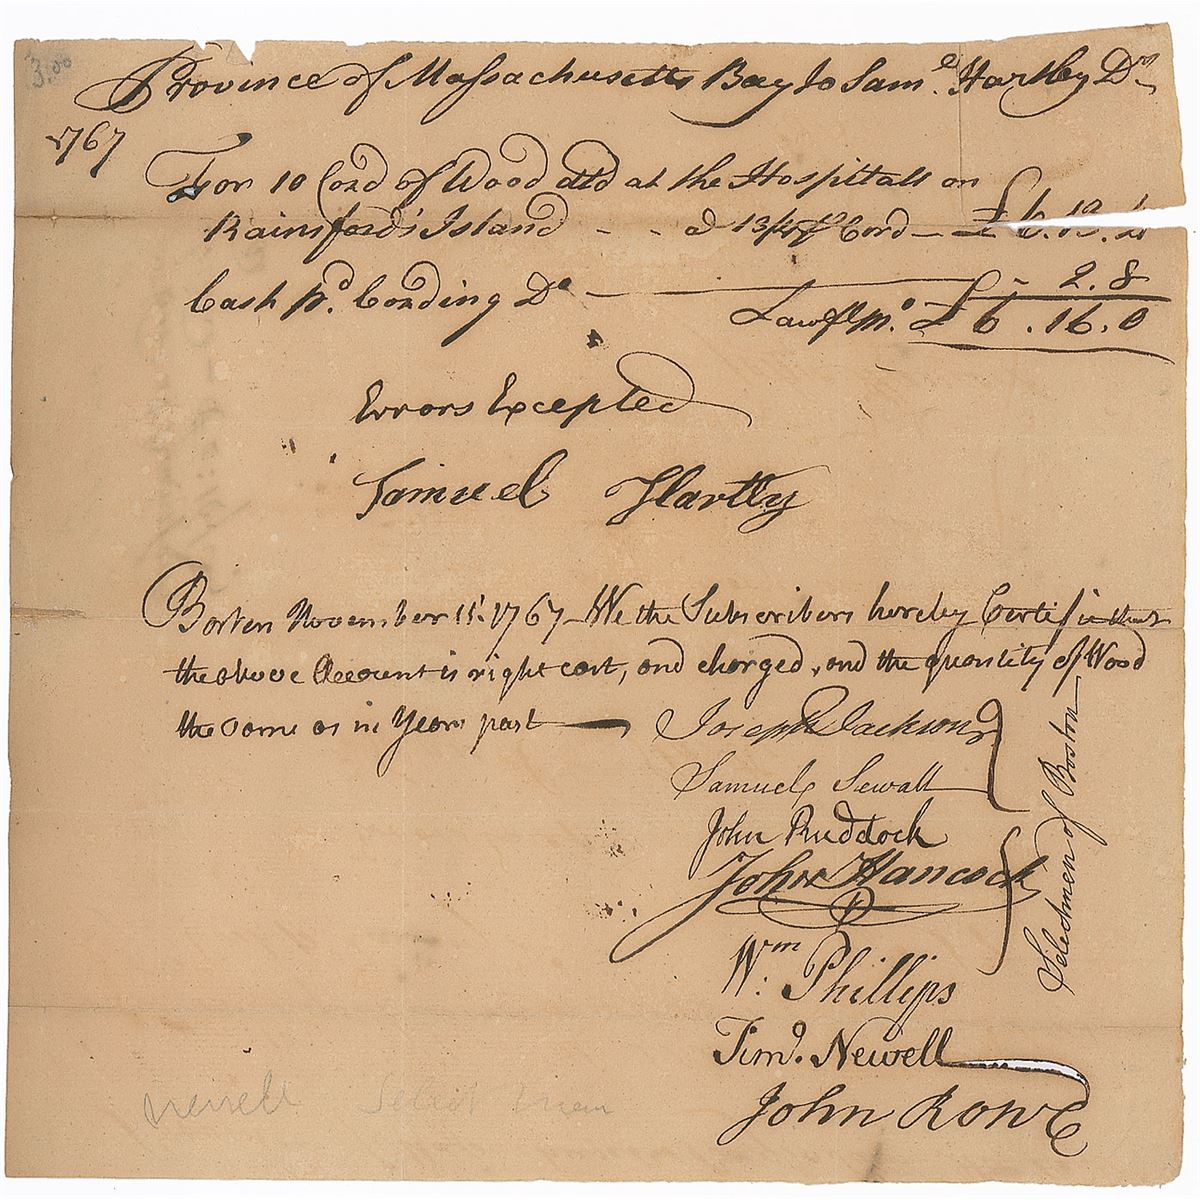 3.00
Province of Massachusetts Bay To Sam.l Hartley Dr
1767
For 10 Cord of Wood dld at the Hospitall on
Rainsford's Island - - a 13/4 Cord — £ 6.13.4
Cash pd. Cording Do — £ - 2.8
Lawfl mo. £ 6.16.0
Errors Excepted
Samuel Hartly
Boston November 15: 1767 We the Subscribers hereby Certifie that
the above Account is right cast, and charged, and the quantity of Wood
the same as in Years past
Joseph Jackson
Samuel Sewall
John Ruddock
John Hancock
Wm: Phillips
Timo. Newell
John Rowe
Selectmen of Boston
newell Select men